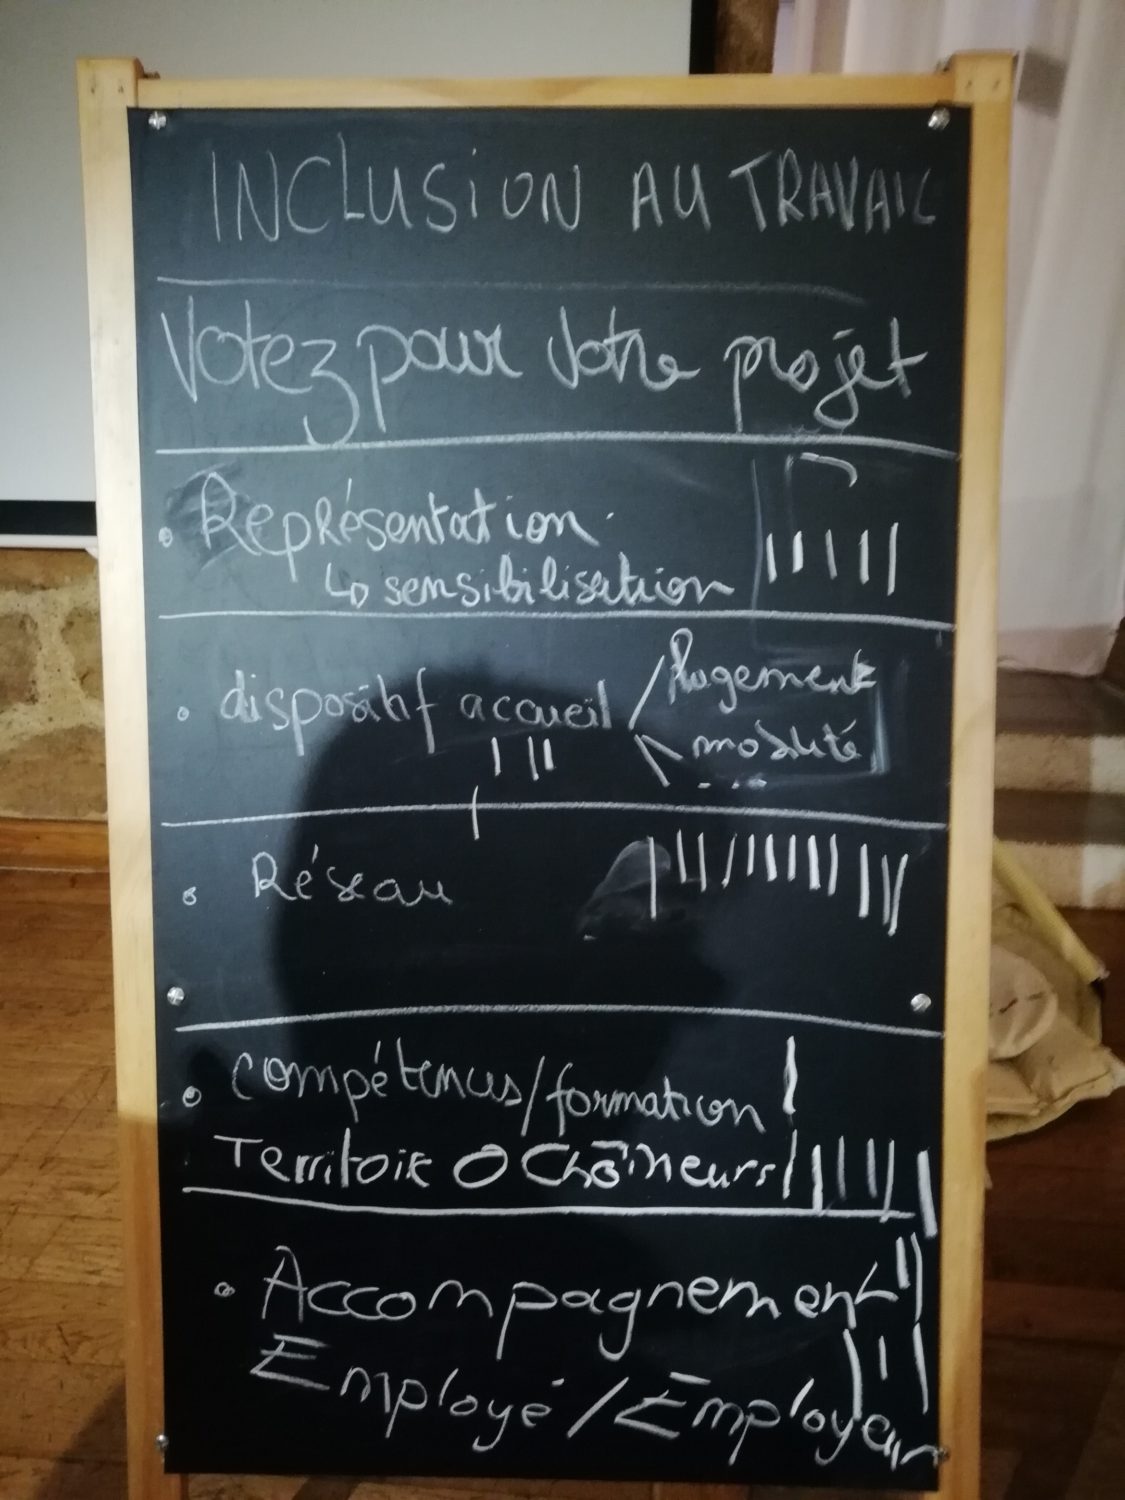 INCLUSION AU TRAVAIL
Votez pour votre projet
• Représentation
↳ sensibilisation
• dispositif accueil / logement
\ mobilité
...
• Réseau
• compétences/formation
Territoire 0 Chômeurs
• Accompagnement
Employé / Employeur